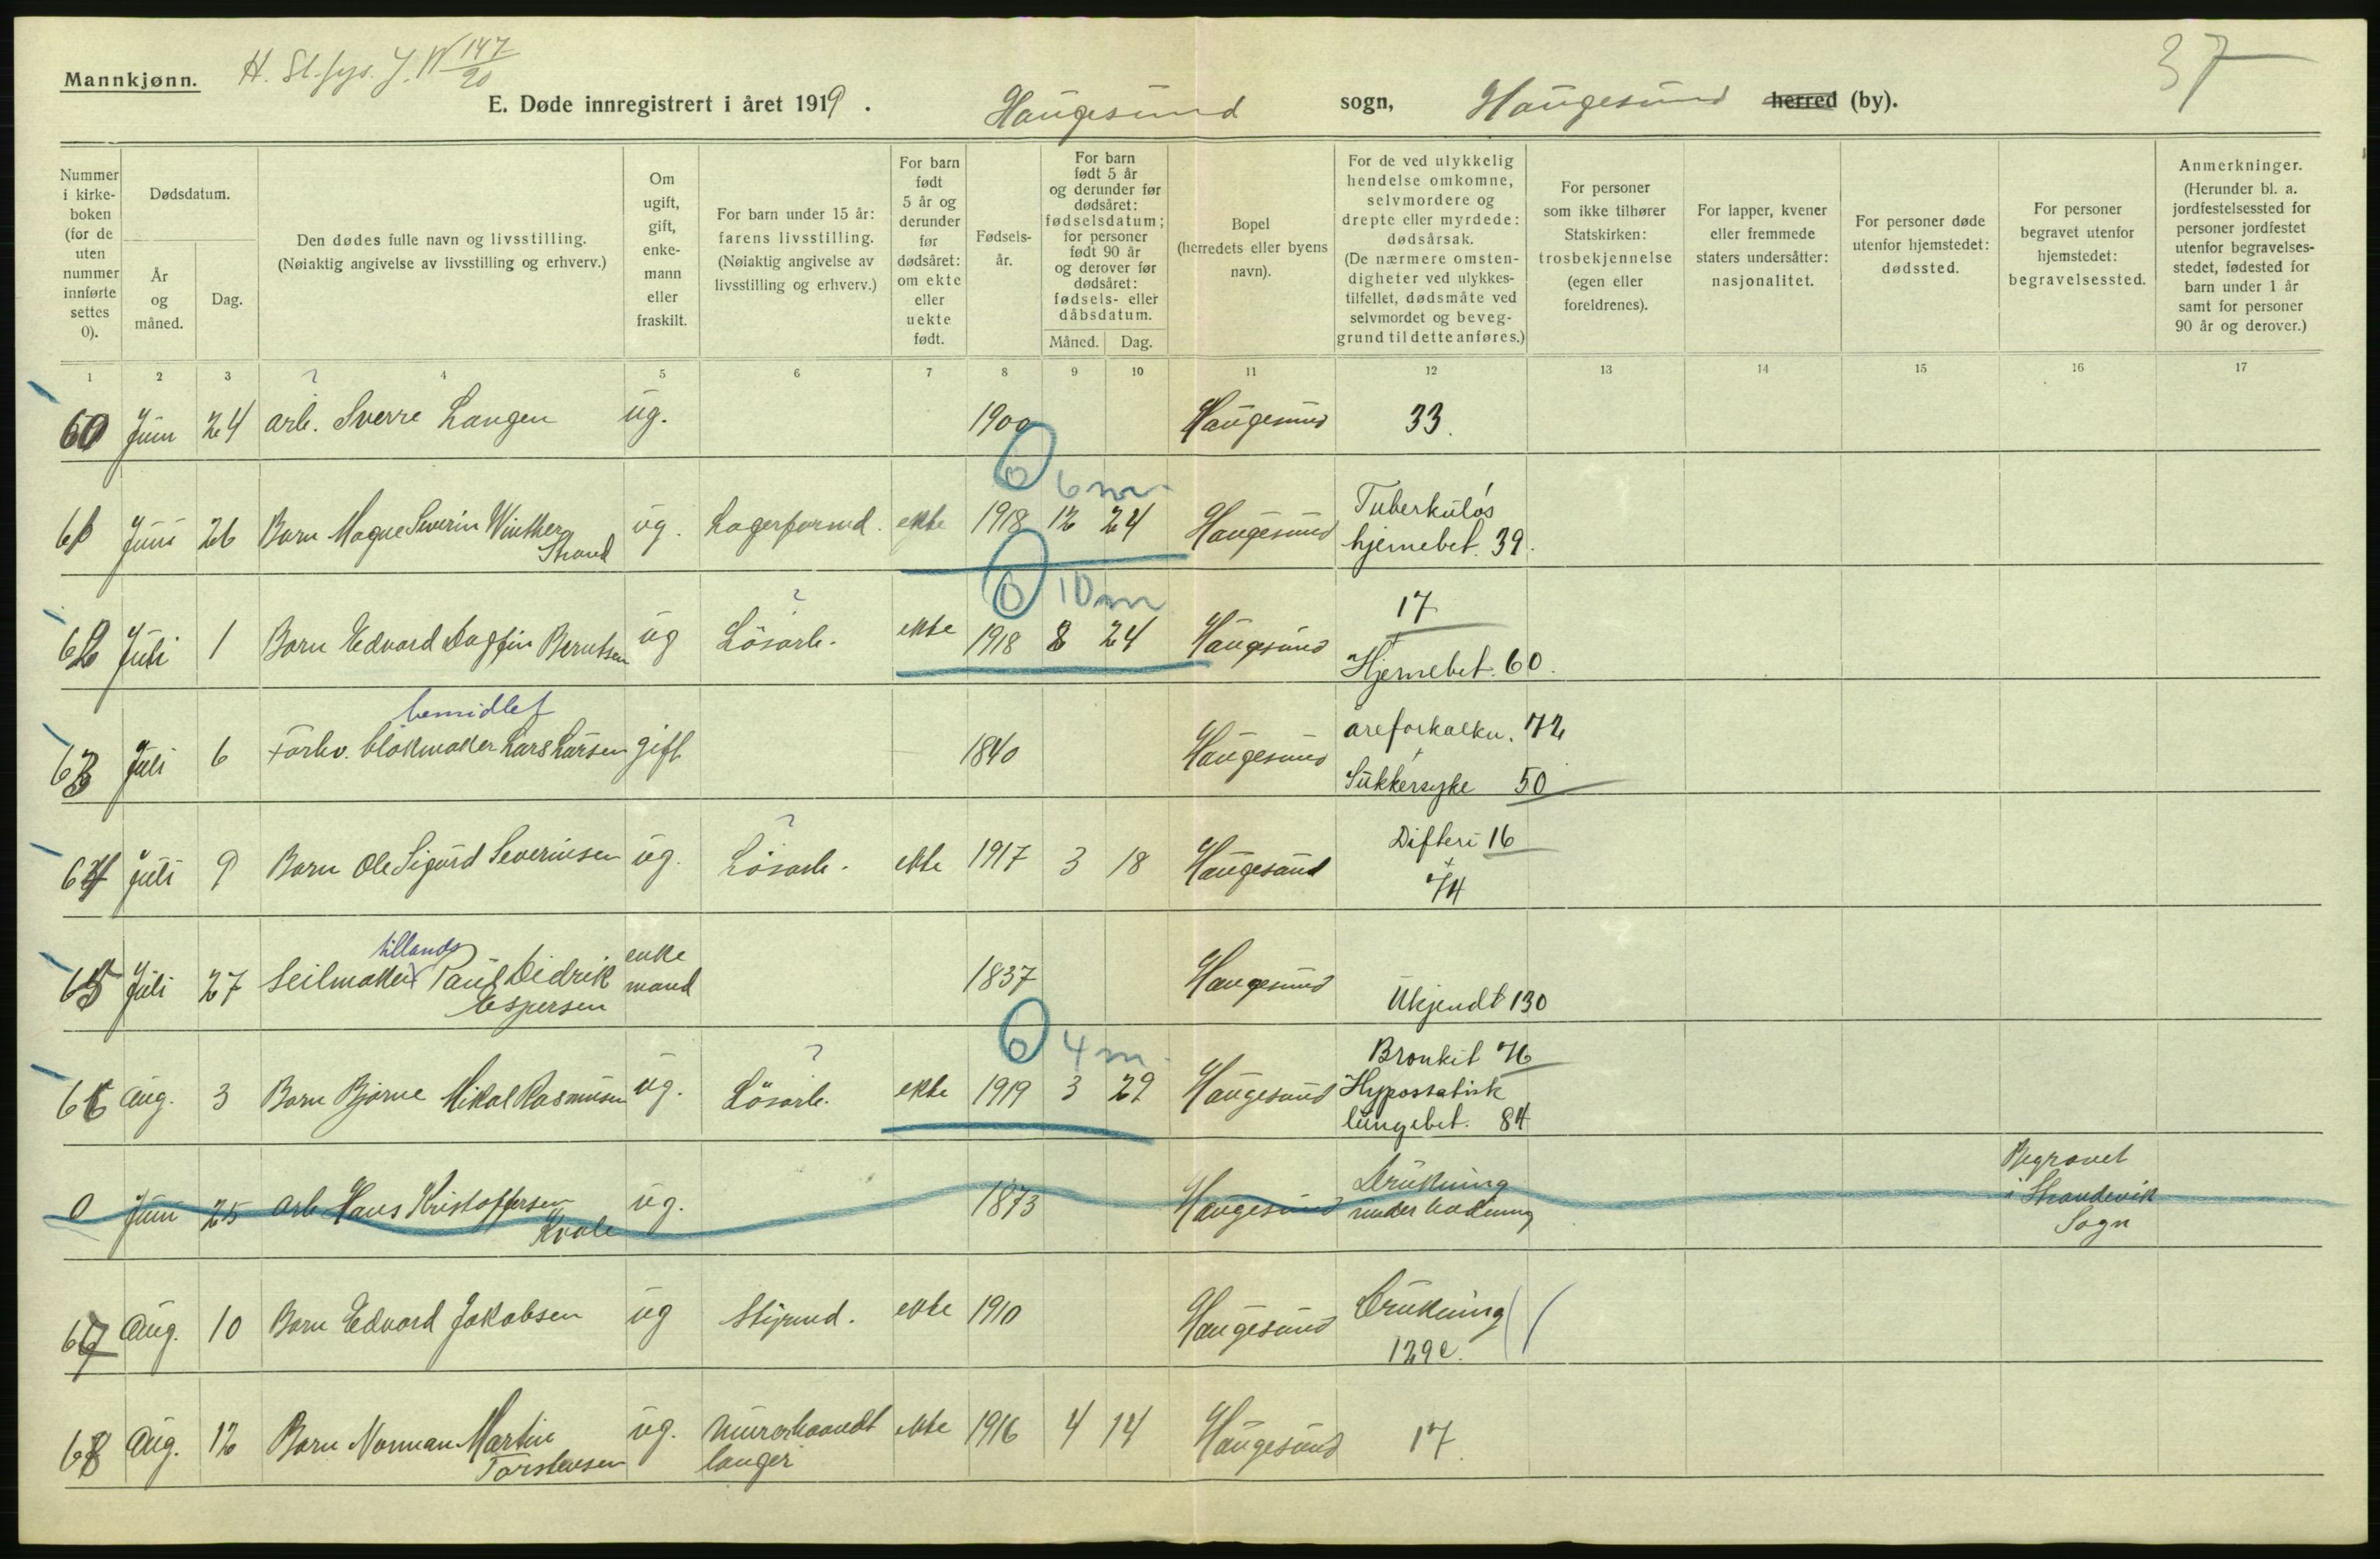 Mannkjønn.
H. St.fys. J. N 147/20
37
E. Døde innregistrert i året 1919. Haugesund sogn, Haugesund herred (by).
Nummer i kirkeboken (for de uten nummer innførte settes 0).
Dødsdatum.
År og måned.
Dag.
Den dødes fulle navn og livsstilling.
(Nøiaktig angivelse av livsstilling og erhverv.)
Om ugift, gift, enkemann eller fraskilt.
For barn under 15 år: farens livsstilling. (Nøiaktig angivelse av livsstilling og erhverv.)
For barn født 5 år og derunder før dødsåret: om ekte eller uekte født.
Fødselsår.
For barn født 5 år og derunder før dødsåret: fødselsdatum; for personer født 90 år og derover før dødsåret: fødsels- eller dåbsdatum.
Måned. Dag.
Bopel (herredets eller byens navn).
For de ved ulykkelig hendelse omkomne, selvmordere og drepte eller myrdede: dødsårsak. (De nærmere omstendigheter ved ulykkestilfellet, dødsmåte ved selvmordet og beveggrund til dette anføres.)
For personer som ikke tilhører Statskirken: trosbekjennelse (egen eller foreldrenes).
For lapper, kvener eller fremmede staters undersåtter: nasjonalitet.
For personer døde utenfor hjemstedet: dødssted.
For personer begravet utenfor hjemstedet: begravelsessted.
Anmerkninger. (Herunder bl. a. jordfestelsessted for personer jordfestet utenfor begravelsesstedet, fødested for barn under 1 år samt for personer 90 år og derover.)
1 2 3 4 5 6 7 8 9 10 11 12 13 14 15 16 17
?
60 Juni 24 arb. Sverre Langen ug. 1900 Haugesund 33.
0 6 m
61 Juni 26 Barn Magne Severin Winther Strand ug. Lagerformd. ekte 1918 12 24 Haugesund Tuberkuløs hjernebet. 39.
? 0 10 m
62 Juli 1 Barn Edvard Dagfin Berntsen ug Lösarb. ekte 1918 8 24 Haugesund 17 + Hjernebet. 60.
bemidlet
63 Juli 6 Forhv. blokmaker Lars Larsen gift 1840 Haugesund åreforkalkn. 72 + Sukkersyke 50
?
64 Juli 9 Barn Ole Sigurd Severinsen ug. Lösarb. ekte 1917 3 18 Haugesund Difteri 16 + 74
tillands
65 Juli 27 Seilmaker Paul Didrik Espersen enkemand 1837 Haugesund Ukjendt 130
? 0 4 m
66 Aug. 3 Barn Bjarne Mikal Rasmusen ug. Lösarb. ekte 1919 3 29 Haugesund Bronkit 76 Hypostatisk lungebet. 84
0 Juni 25 arb. Hans Kristoffersen Kvale ug. 1873 Haugesund Drukning under badning Begravet i Strandevik Sogn
67 Aug. 10 Barn Edvard Jakobsen ug Styrmd. ekte 1910 Haugesund Drukning 129e.
68 Aug. 12 Barn Norman Martin Torstensen ug. Murerhaandtlanger ekte 1916 4 14 Haugesund 17.